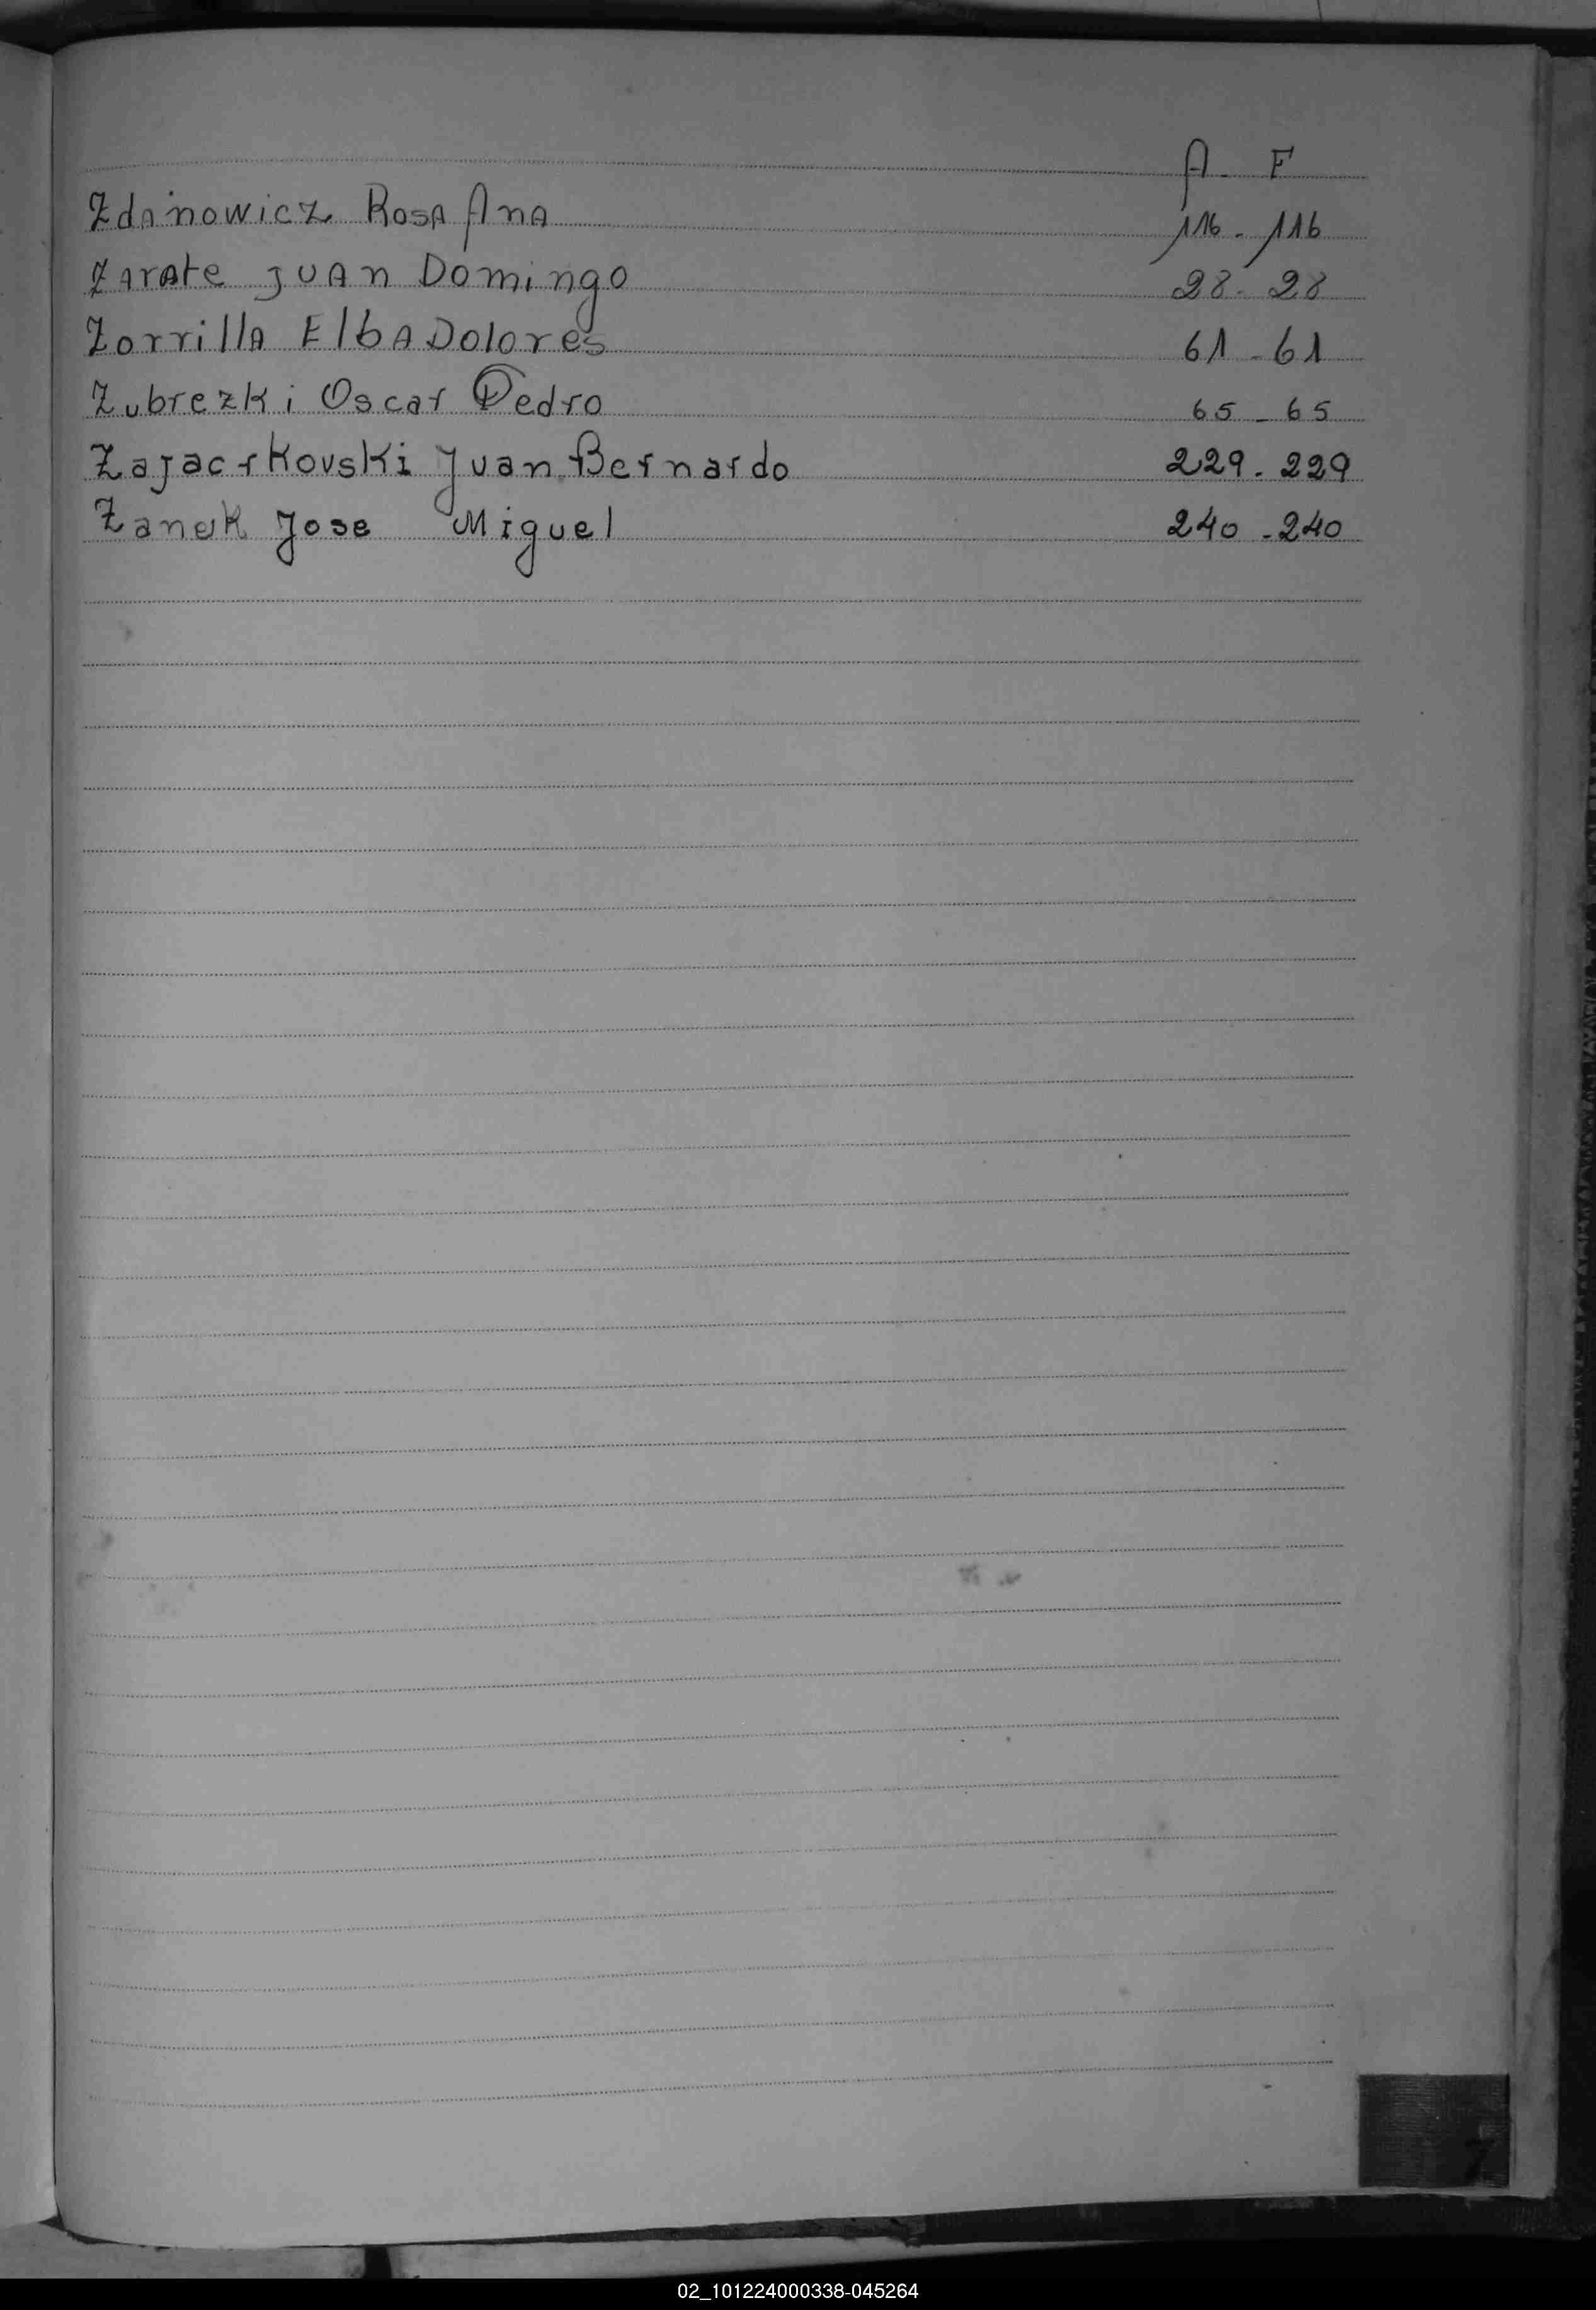 A. F
Zdanowicz Rosa Ana 116 - 116
Zarate Juan Domingo 28 - 28
Zorrilla Elba Dolores 61 - 61
Zubrezki Oscar Pedro 65 - 65
Zajacrkovski Juan Bernardo 229 - 229
Jose Miguel 240 - 240
Z
02_101224000338-045264